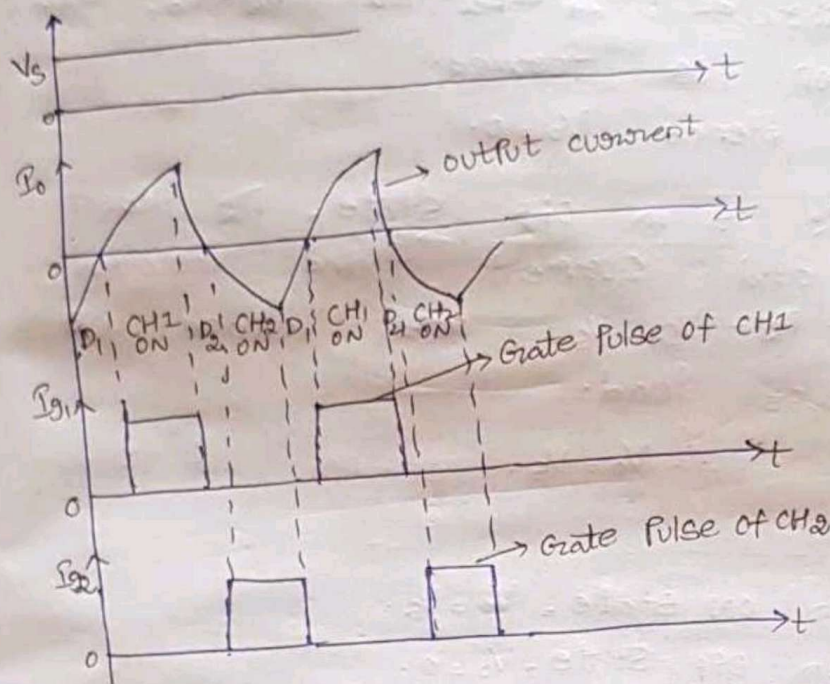 Vs
t
0
I0
output current
t
0
D1 CH1 ON D2 CH2 ON D1 CH1 ON CH2 ON
Gate Pulse of CH1
Ig1
t
0
Gate Pulse of CH2
Ig2
t
0